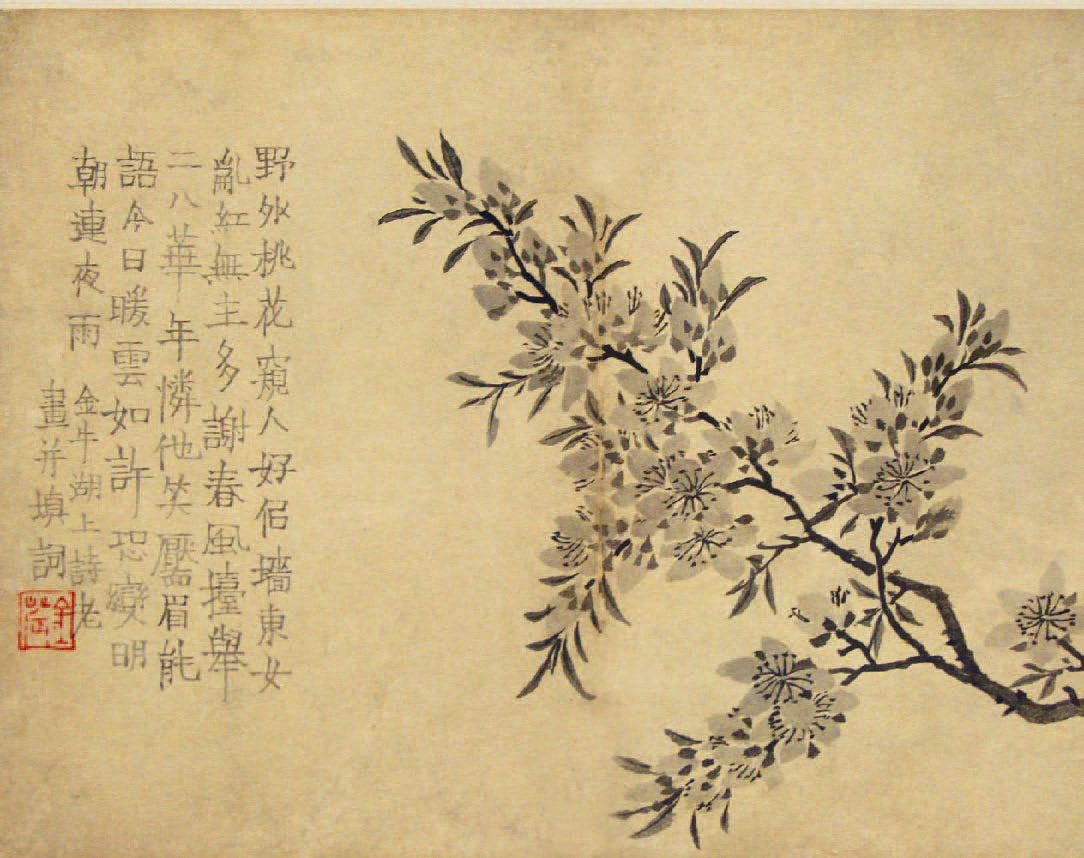 野外桃花窺人好佀墙東女
亂紅無主多謝春風擡舉
二八華年憐他笑靨眉能
語今日暖雲如許恐變明
朝連夜雨
金牛湖上詩老
畫并填詞